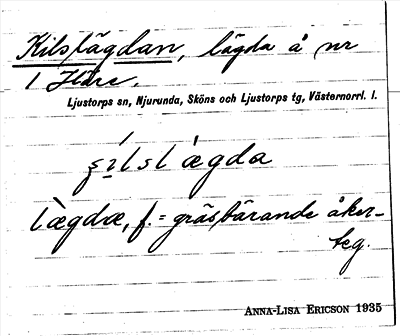 Kilslägdan, lägda å nr
1 Hare.
Ljustorps sn, Njurunda, Sköns och Ljustorps tg, Västernorrl. l.
lægdæ, f. = gräsbärande åker-
teg.
ANNA-LISA ERICSON 1935